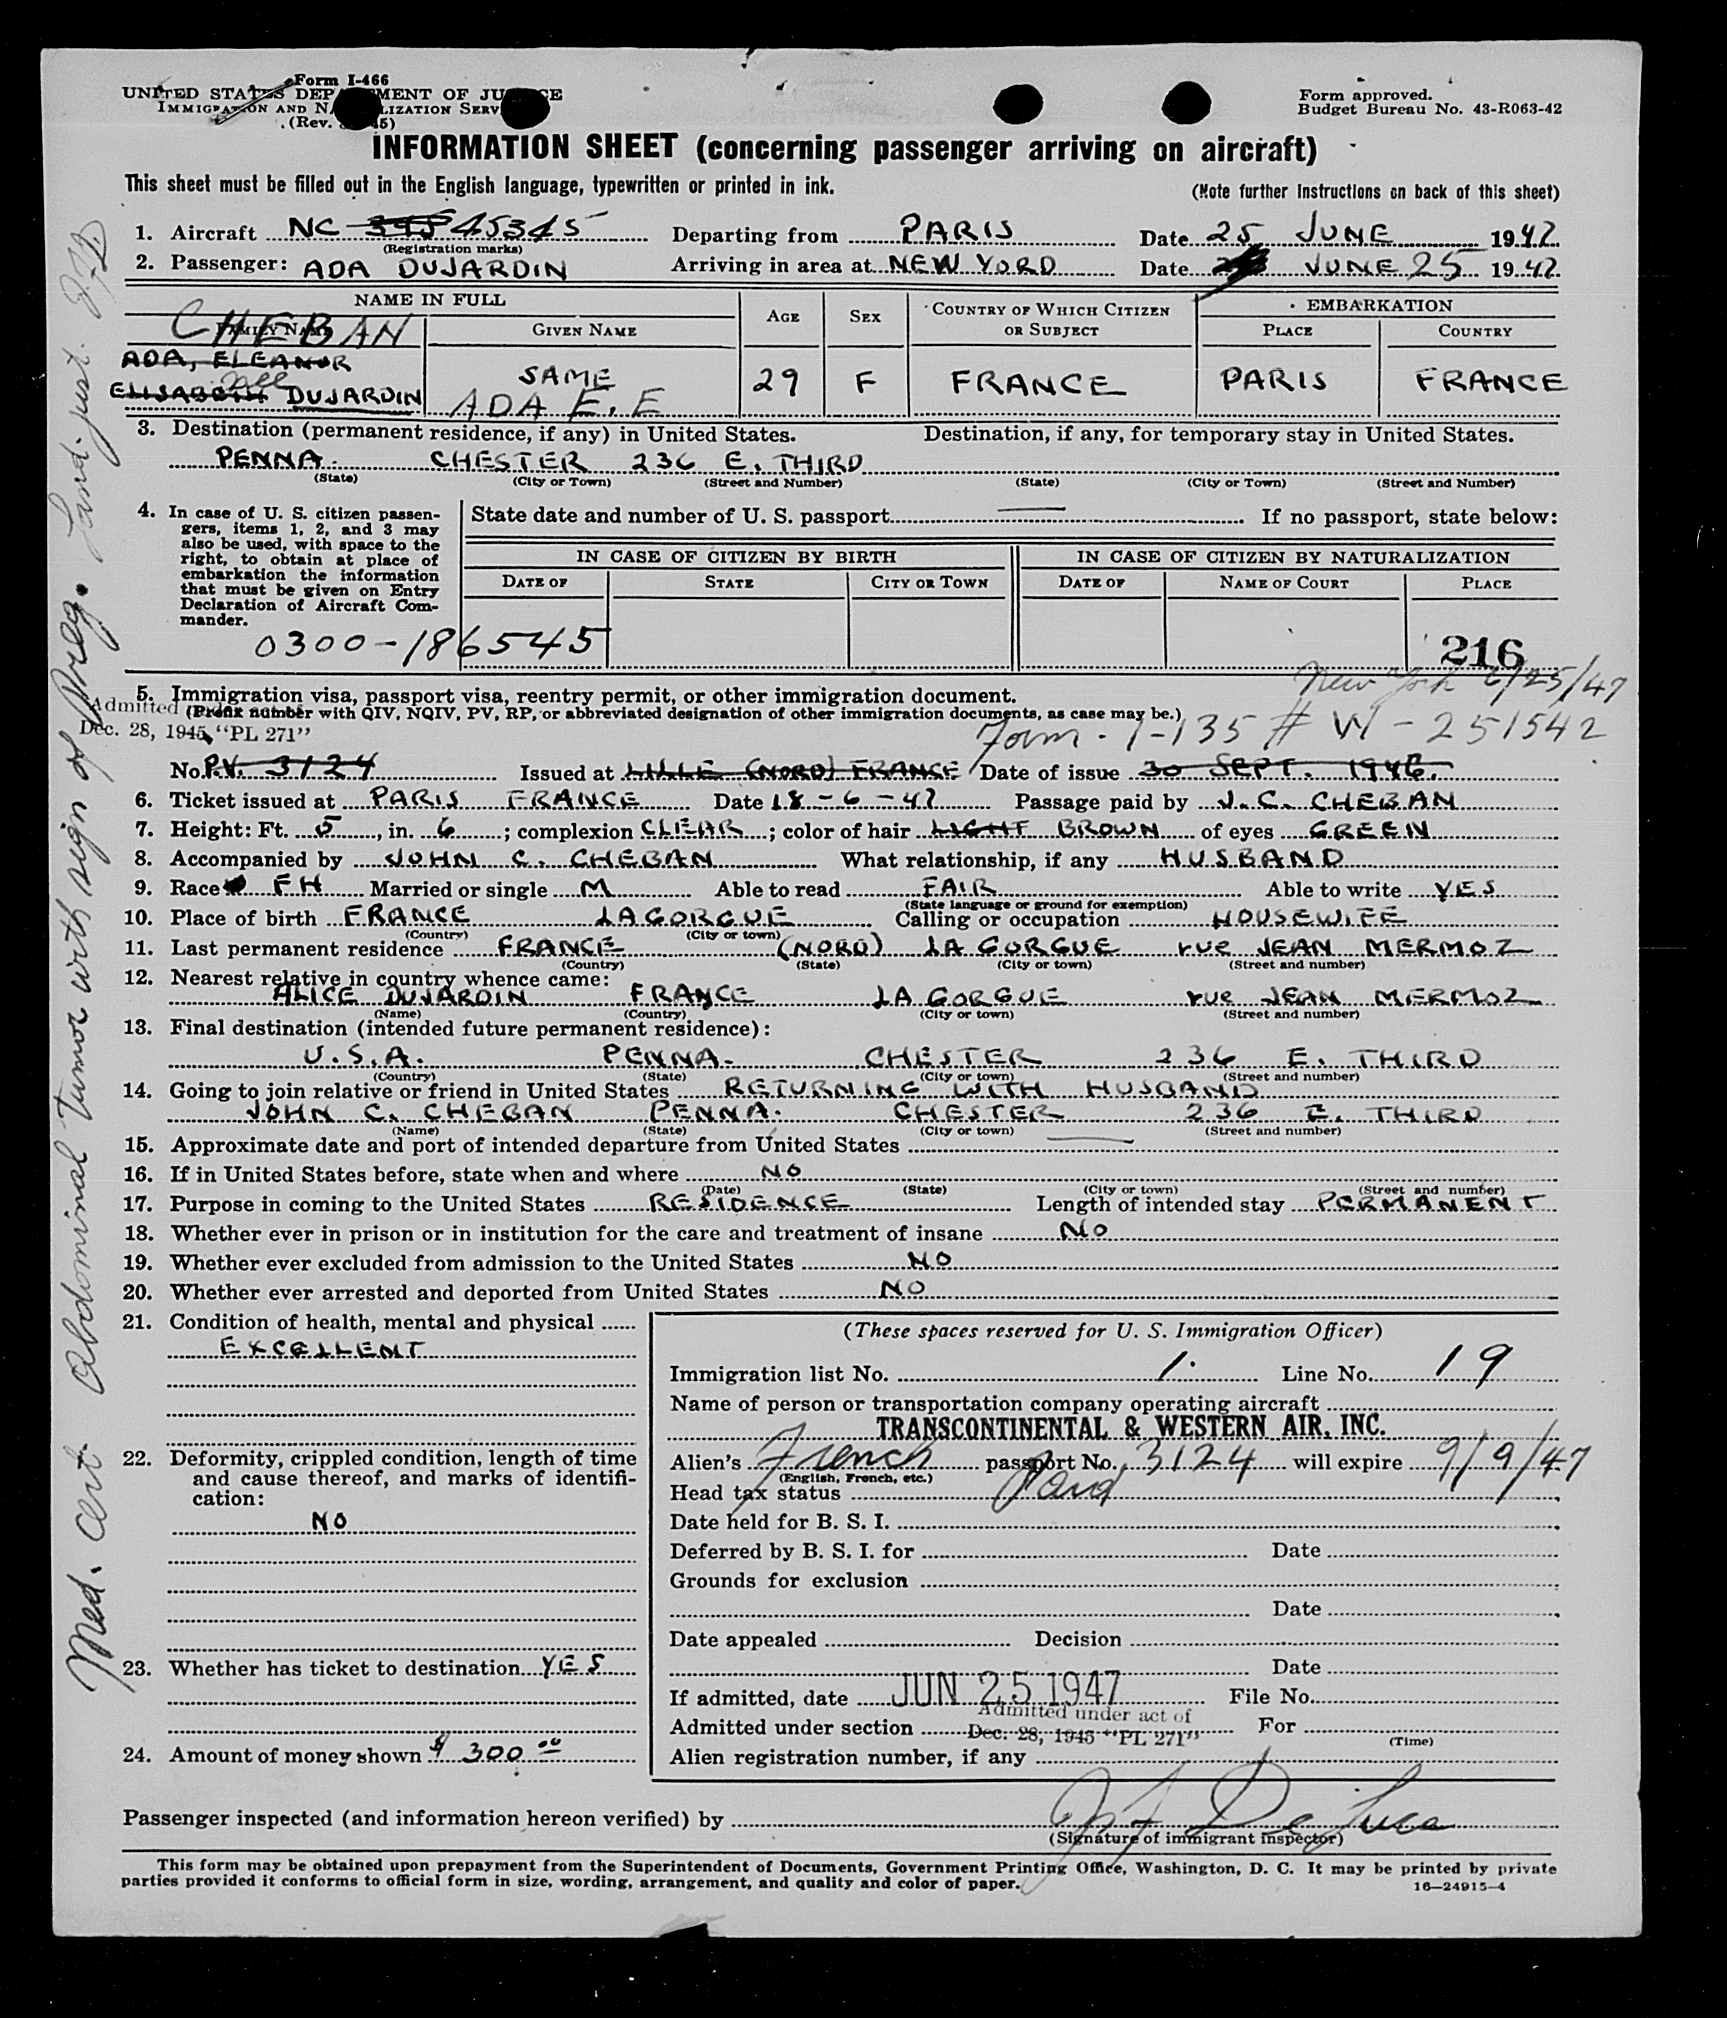 Form I-466
UNITED STATES DEPARTMENT OF JUSTICE
IMMIGRATION AND NATURALIZATION SERV
(Rev. 5)
Form approved.
Budget Bureau No. 43-R063-42
INFORMATION SHEET (concerning passenger arriving on aircraft)
This sheet must be filled out in the English language, typewritten or printed in ink.
(Note further instructions on back of this sheet)
1. Aircraft NC 45345 Departing from PARIS Date 25 JUNE 1947
(Registration marks)
2. Passenger: ADA DUJARDIN Arriving in area at NEW YORD Date JUNE 25 1947
NAME IN FULL
FAMILY NAME GIVEN NAME AGE SEX COUNTRY OF WHICH CITIZEN OR SUBJECT EMBARKATION PLACE COUNTRY
CHEBAN
ADA, ELEANOR
ELISABETH née DUJARDIN SAME 29 F FRANCE PARIS FRANCE
ADA E. E
3. Destination (permanent residence, if any) in United States. Destination, if any, for temporary stay in United States.
PENNA. CHESTER 236 E. THIRD
(State) (City or Town) (Street and Number) (State) (City or Town) (Street and Number)
4. In case of U. S. citizen passen-
gers, items 1, 2, and 3 may
also be used, with space to the
right, to obtain at place of
embarkation the information
that must be given on Entry
Declaration of Aircraft Com-
mander.
State date and number of U. S. passport If no passport, state below:
IN CASE OF CITIZEN BY BIRTH IN CASE OF CITIZEN BY NATURALIZATION
DATE OF STATE CITY OR TOWN DATE OF NAME OF COURT PLACE
0300-186545 216
New York 6/25/47
5. Immigration visa, passport visa, reentry permit, or other immigration document.
Admitted
(Prefix number with QIV, NQIV, PV, RP, or abbreviated designation of other immigration documents, as case may be.)
Dec. 28, 1945 "PL 271"
Form. I-135 # W-251542
No. P.V. 3124 Issued at LILLE (NORD) FRANCE Date of issue 30 SEPT. 1946.
6. Ticket issued at PARIS FRANCE Date 18-6-47 Passage paid by J. C. CHEBAN
7. Height: Ft. 5, in. 6; complexion CLEAR; color of hair LIGHT BROWN of eyes GREEN
8. Accompanied by JOHN C. CHEBAN What relationship, if any HUSBAND
9. Race FH Married or single M Able to read FAIR Able to write YES
(State language or ground for exemption)
10. Place of birth FRANCE LAGORGUE Calling or occupation HOUSEWIFE
(Country) (City or town)
11. Last permanent residence FRANCE (NORD) LA GORGUE rue JEAN MERMOZ
(Country) (State) (City or town) (Street and number)
12. Nearest relative in country whence came:
ALICE DUJARDIN FRANCE LA GORGUE rue JEAN MERMOZ
(Name) (Country) (City or town) (Street and number)
13. Final destination (intended future permanent residence):
U.S.A. PENNA. CHESTER 236 E. THIRD
(Country) (State) (City or town) (Street and number)
14. Going to join relative or friend in United States RETURNING WITH HUSBAND
JOHN C. CHEBAN PENNA. CHESTER 236 E. THIRD
(Name) (State) (City or town) (Street and number)
15. Approximate date and port of intended departure from United States
16. If in United States before, state when and where NO
(Date) (State) (City or town) (Street and number)
17. Purpose in coming to the United States RESIDENCE Length of intended stay PERMANENT
18. Whether ever in prison or in institution for the care and treatment of insane NO
19. Whether ever excluded from admission to the United States NO
20. Whether ever arrested and deported from United States NO
21. Condition of health, mental and physical
EXCELLENT
22. Deformity, crippled condition, length of time
and cause thereof, and marks of identifi-
cation:
NO
23. Whether has ticket to destination YES
24. Amount of money shown $ 300 00
(These spaces reserved for U. S. Immigration Officer)
Immigration list No. 1. Line No. 19
Name of person or transportation company operating aircraft
TRANSCONTINENTAL & WESTERN AIR, INC.
Alien's French passport No. 3124 will expire 9/9/47
(English, French, etc.)
Head tax status Paid
Date held for B. S. I.
Deferred by B. S. I. for Date
Grounds for exclusion
Date
Date appealed Decision
Date
If admitted, date JUN 25 1947 File No.
Admitted under act of
Admitted under section Dec. 28, 1945 "PL 271" For
(Time)
Alien registration number, if any
Passenger inspected (and information hereon verified) by De Luca
(Signature of immigrant inspector)
This form may be obtained upon prepayment from the Superintendent of Documents, Government Printing Office, Washington, D. C. It may be printed by private
parties provided it conforms to official form in size, wording, arrangement, and quality and color of paper.
16—24915-4
Med. Cert. Abdominal tumor with sign of Preg. Land. just.